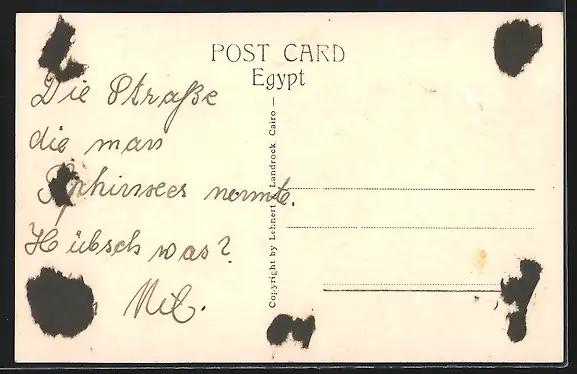 POST CARD
Egypt
Die Straße
die man
Sphinxees nennt.
Hübsch was?
Copyright by Lehnert & Landrock, Cairo —